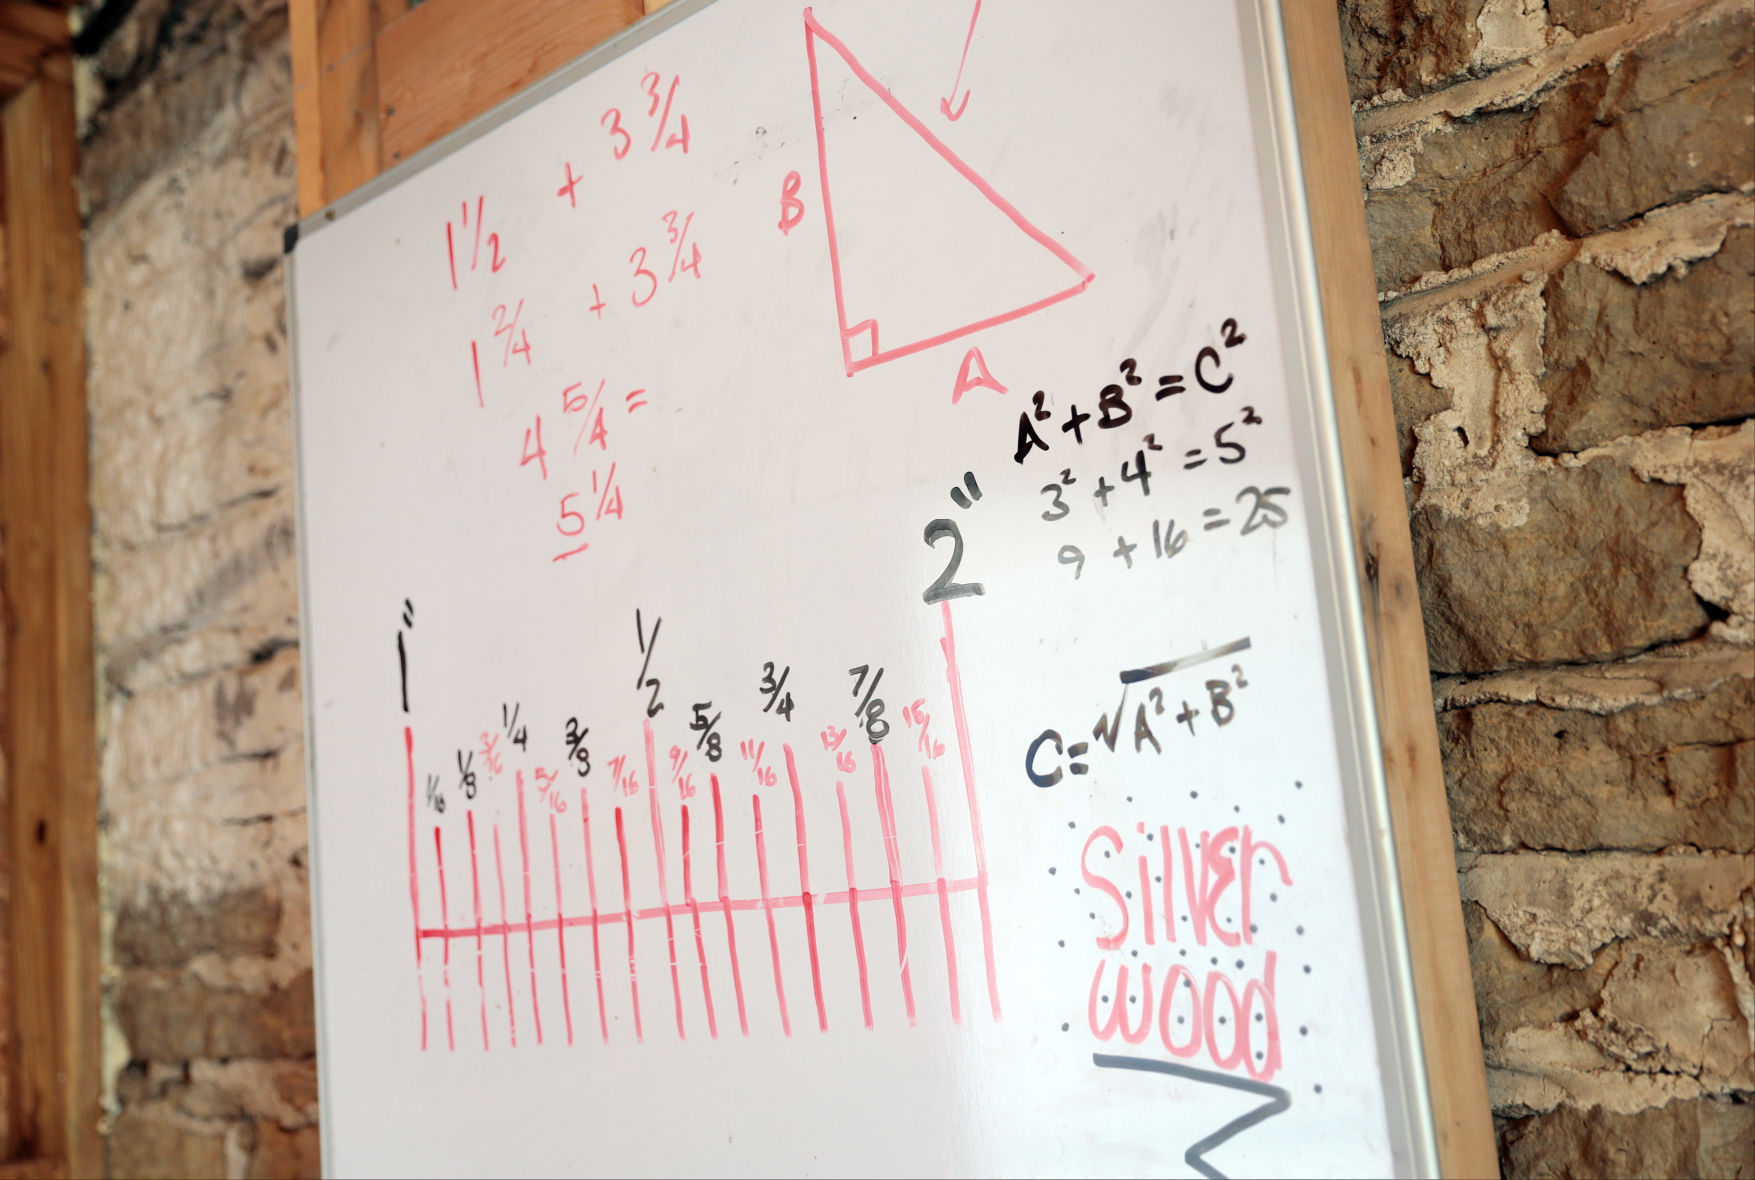 1 1/2 + 3 3/4
1 2/4 + 3 3/4
4 5/4 =
5 1/4
B
A
A² + B² = C²
3² + 4² = 5²
9 + 16 = 25
1" 1/16 1/8 3/16 1/4 5/16 3/8 7/16 1/2 9/16 5/8 11/16 3/4 13/16 7/8 15/16 2"
C = √A² + B²
Silver
wood